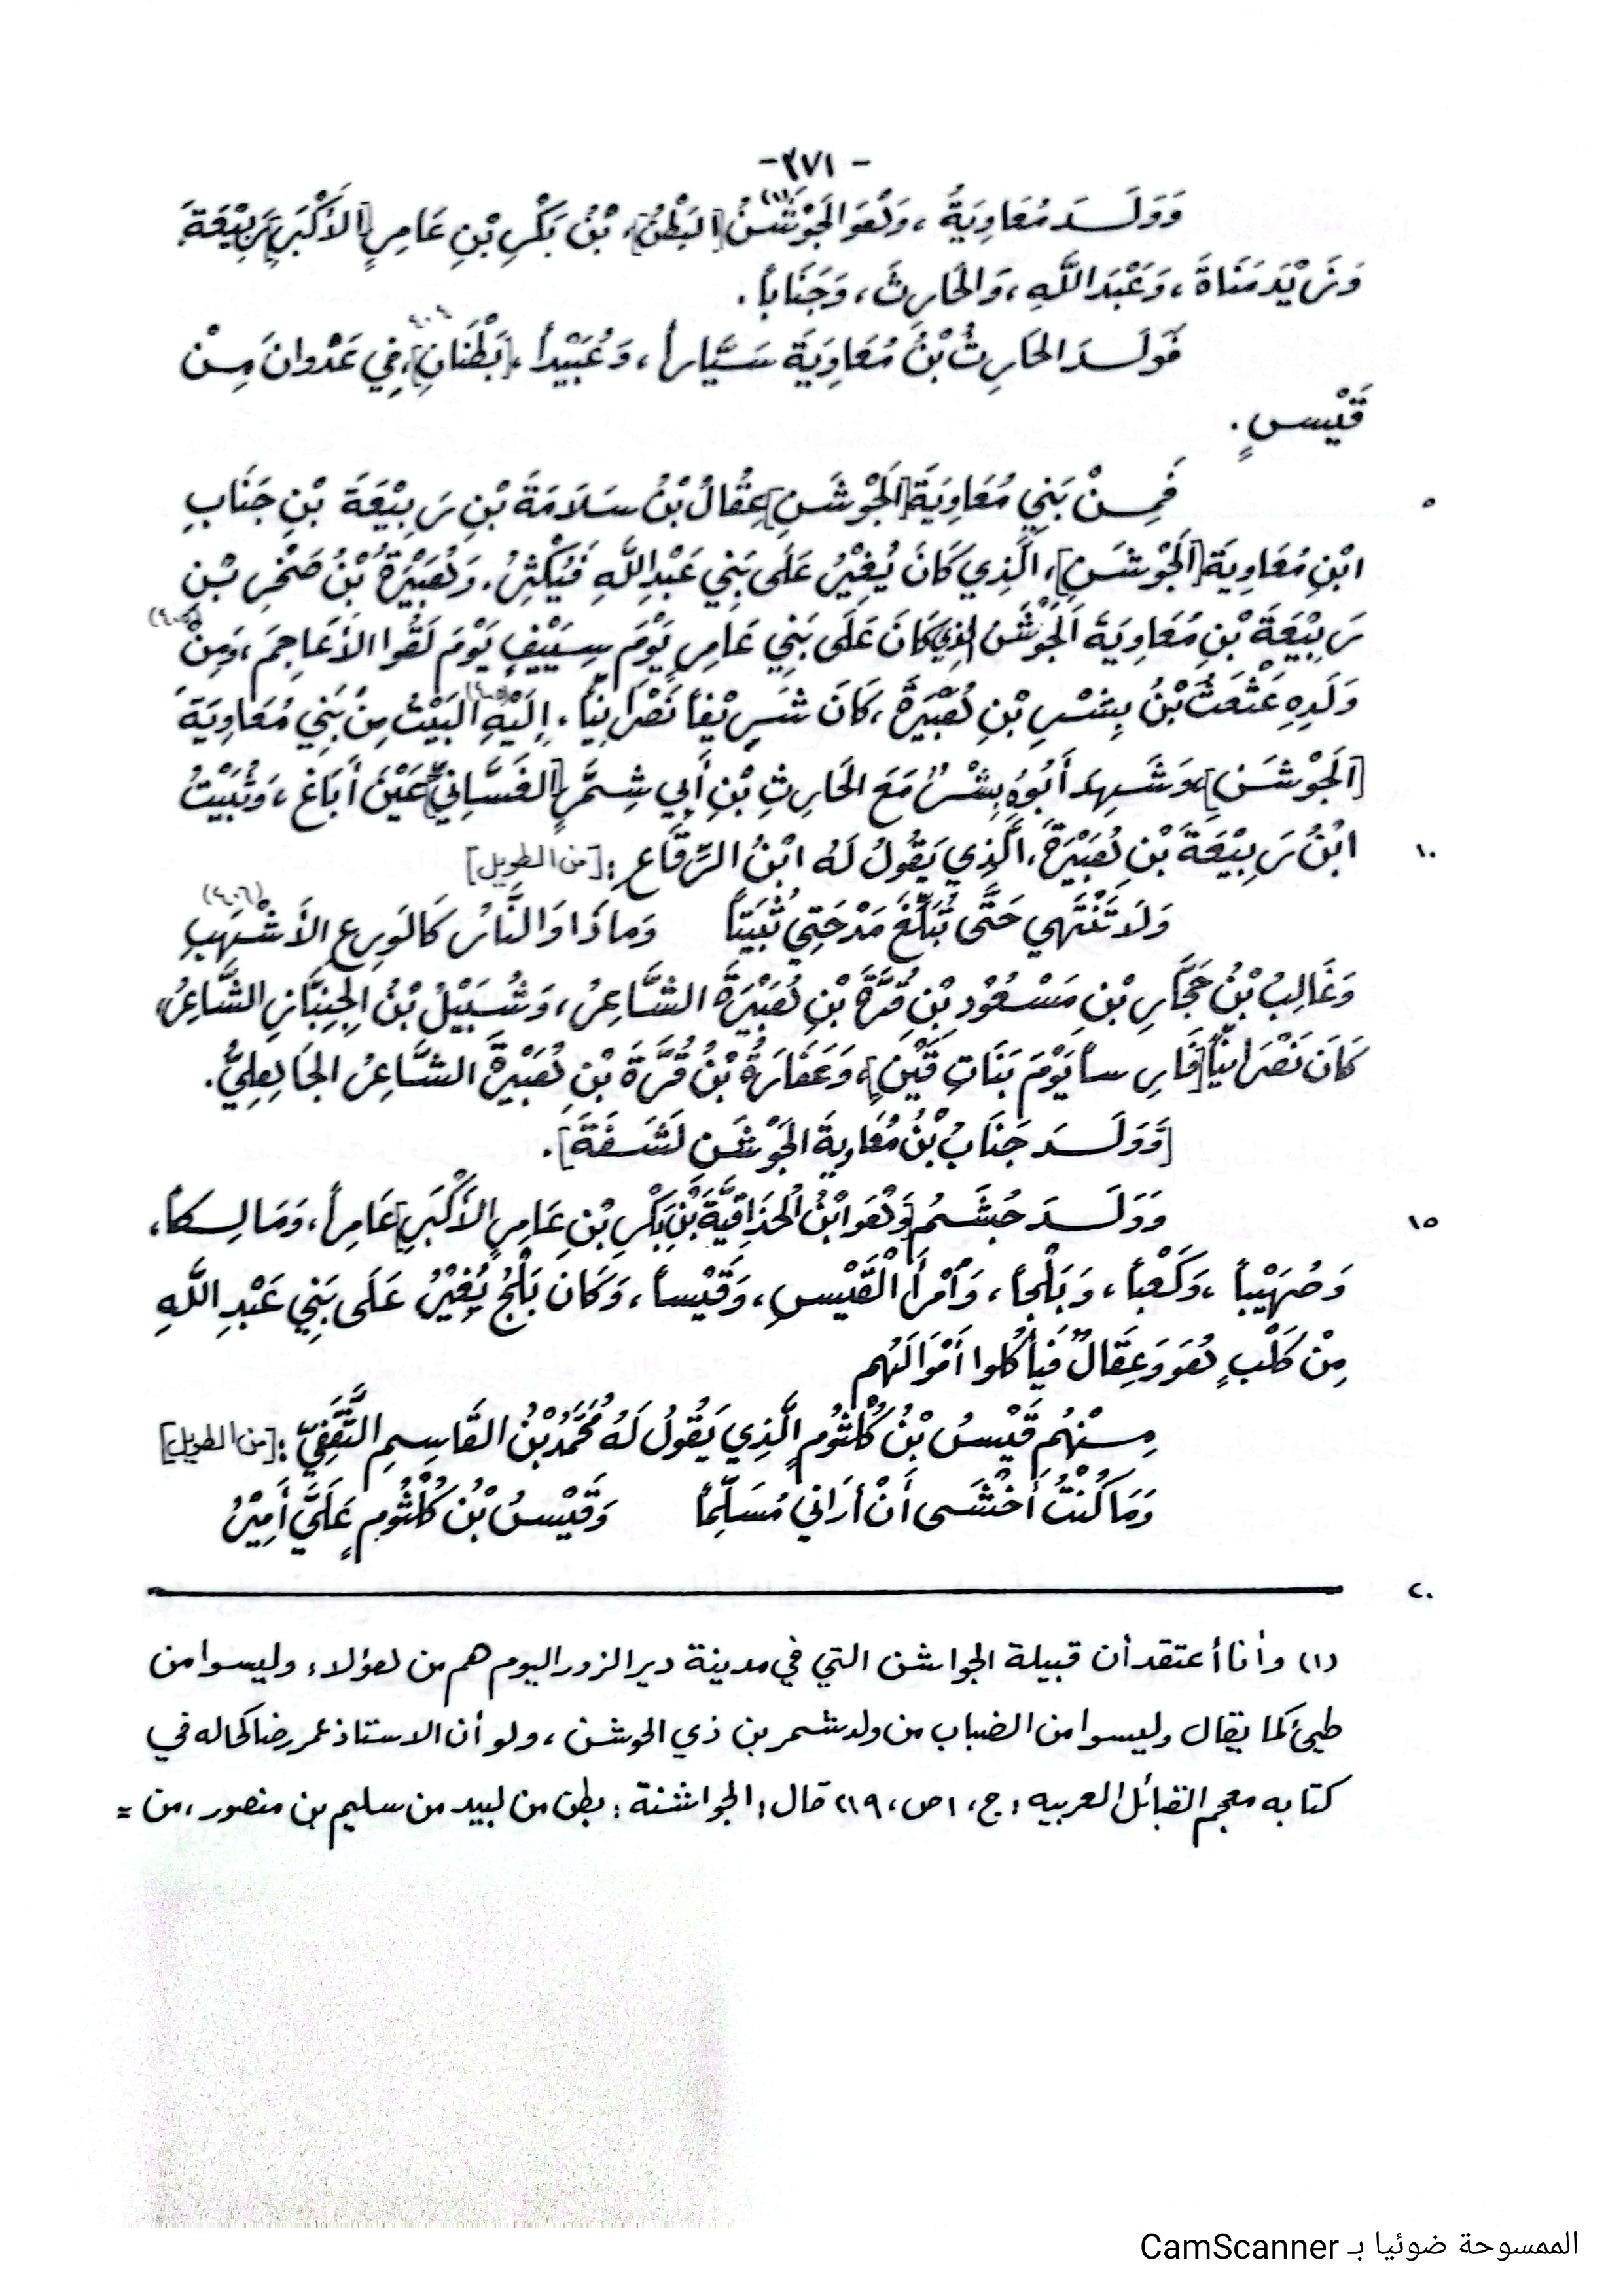 -٣٧١-
وَوَلَــدَ مُعَاوِيَةُ، وَهُوَ الجَوْشَنُ(١) [البَطْنُ]، بْنُ بَكْرِ بْنِ عَامِرٍ [الأَكْبَرِ] رَبِيْعَةَ،
وَزَيْدَ مَنَاةَ، وَعَبْدَ اللَّهِ، وَالحَارِثَ، وَجَنَاباً.
فَوَلَــدَ الحَارِثُ بْنُ مُعَاوِيَةَ سَيَّاراً، وَعُبَيْداً، [بَطْنَانِ]، ٤٠٤ فِي عَدْوانَ مِــنْ
قَيْسٍ.
٥ فَمِــنْ بَنِي مُعَاوِيَةَ [الجَوْشَنِ] عِقَالُ بْنُ سَلَامَةَ بْنِ رَبِيْعَةَ بْنِ جَنَابِ
ابْنِ مُعَاوِيَةَ [الجَوْشَنِ]، الَّذِي كَانَ يُغِيْرُ عَلَى بَنِي عَبْدِ اللَّهِ فَيُكْثِرُ. وَهُبَيْرَةُ بْنُ صَخْرِ بْنِ
رَبِيْعَةَ بْنِ مُعَاوِيَةَ الجَوْشَن الذي كَانَ عَلَى بَنِي عَامِرٍ يَوْمَ سِيَيْفٍ يَوْمَ لَقُوا الأَعَاجِمَ، وَمِنْ
وَلَدِهِ عَثْعَثُ بْنُ بِشْرِ بْنِ هُبَيْرَةَ، كَانَ شَرِيْفاً نَصْرَانِيّاً، إِلَيْهِ(٤٠٥) البَيْتُ مِنْ بَنِي مُعَاوِيَةَ
[الجَوْشَنِ]، وَشَهِدَ أَبُوهُ بِشْرٌ مَعَ الحَارِثِ بْنِ أَبِي شِمْرٍ [الغَسَّانِيِّ] عَيْنَ أَبَاغَ، وَثُبَيْتُ
١٠ ابْنُ رَبِيْعَةَ بْنِ هُبَيْرَةَ، الَّذِي يَقُولُ لَهُ ابْنُ الرِّقَاعِ: [من الطويل]
وَلَا تَنْتَهِي حَتَّى تُبَلِّغَ مَدْحَتِي ثُبَيْتاً وَماذَا وَالنَّاسُ كَالوَرِعِ الأَشْهَبِ (٤٠٦)
وَغَالِبُ بْنُ حَجَّارِ بْنِ مَسْعُوْدِ بْنِ قُرَّةَ بْنِ هُبَيْرَةَ الشَّاعِرُ، وَشُبَيْلُ بْنُ الجِنِبَّارِ الشَّاعِرُ،
كَانَ نَصْرَانِيّاً [فَارِساً يَوْمَ بَنَاتِ قَيْنٍ]، وَعَفَارَةُ بْنُ قُرَّةَ بْنِ هُبَيْرَةَ الشَّاعِرُ الجَاهِلِيُّ.
[وَوَلَــدَ جَنَابُ بْنُ مُعَاوِيةَ الجَوْشَنِ لَشَسَفَةَ].
١٥ وَوَلَــدَ جُشَــمُ [وَهُوَ ابْنُ الحُذَاقِيَّةِ بْنِ بَكْرِ بْنِ عَامِرٍ الأَكْبَرِ] عَامِراً، وَمَالِكاً،
وَصُهَيْباً، وَكَعْباً، وَبَلْجاً، وَامْرَأَ الْقَيْسِ، وَقَيْساً، وَكَانَ بَلْجُ يُغِيْرُ عَلَى بَنِي عَبْدِ اللَّهِ
مِنْ كَلْبٍ هُوَ وَعِقَالٌ فَيَأْكُلوا أَمْوَالَهُم
مِــنْهُم قَيْسُ بْنُ كُلْثُومٍ الَّذِي يَقُولُ لَهُ مُحَمَّدُ بْنُ القَاسِمِ الثَّقَفِيّ: [من الطويل]
وَمَا كُنْتُ أَخْشَى أَنْ أرَانِي مُسَلِّماً وَقَيْسُ بْنُ كُلْثُومٍ عَلَيَّ أَمِيْرُ
٢٠
(١) وأنا أعتقد أن قبيلة الجواشن التي في مدينة دير الزور اليوم هم من هؤلاء وليسوا من
طيئ كما يقال وليسوا من الضباب من ولد شمر بن ذي الجوشن، ولو أن الاستاذ عمر رضا كحاله في
كتابه معجم القبائل العربيه: ج، ١ ص، ٢١٩ قال: الجواشنة: بطن من لبيد من سليم بن منصور، من =
الممسوحة ضوئيا بـ CamScanner